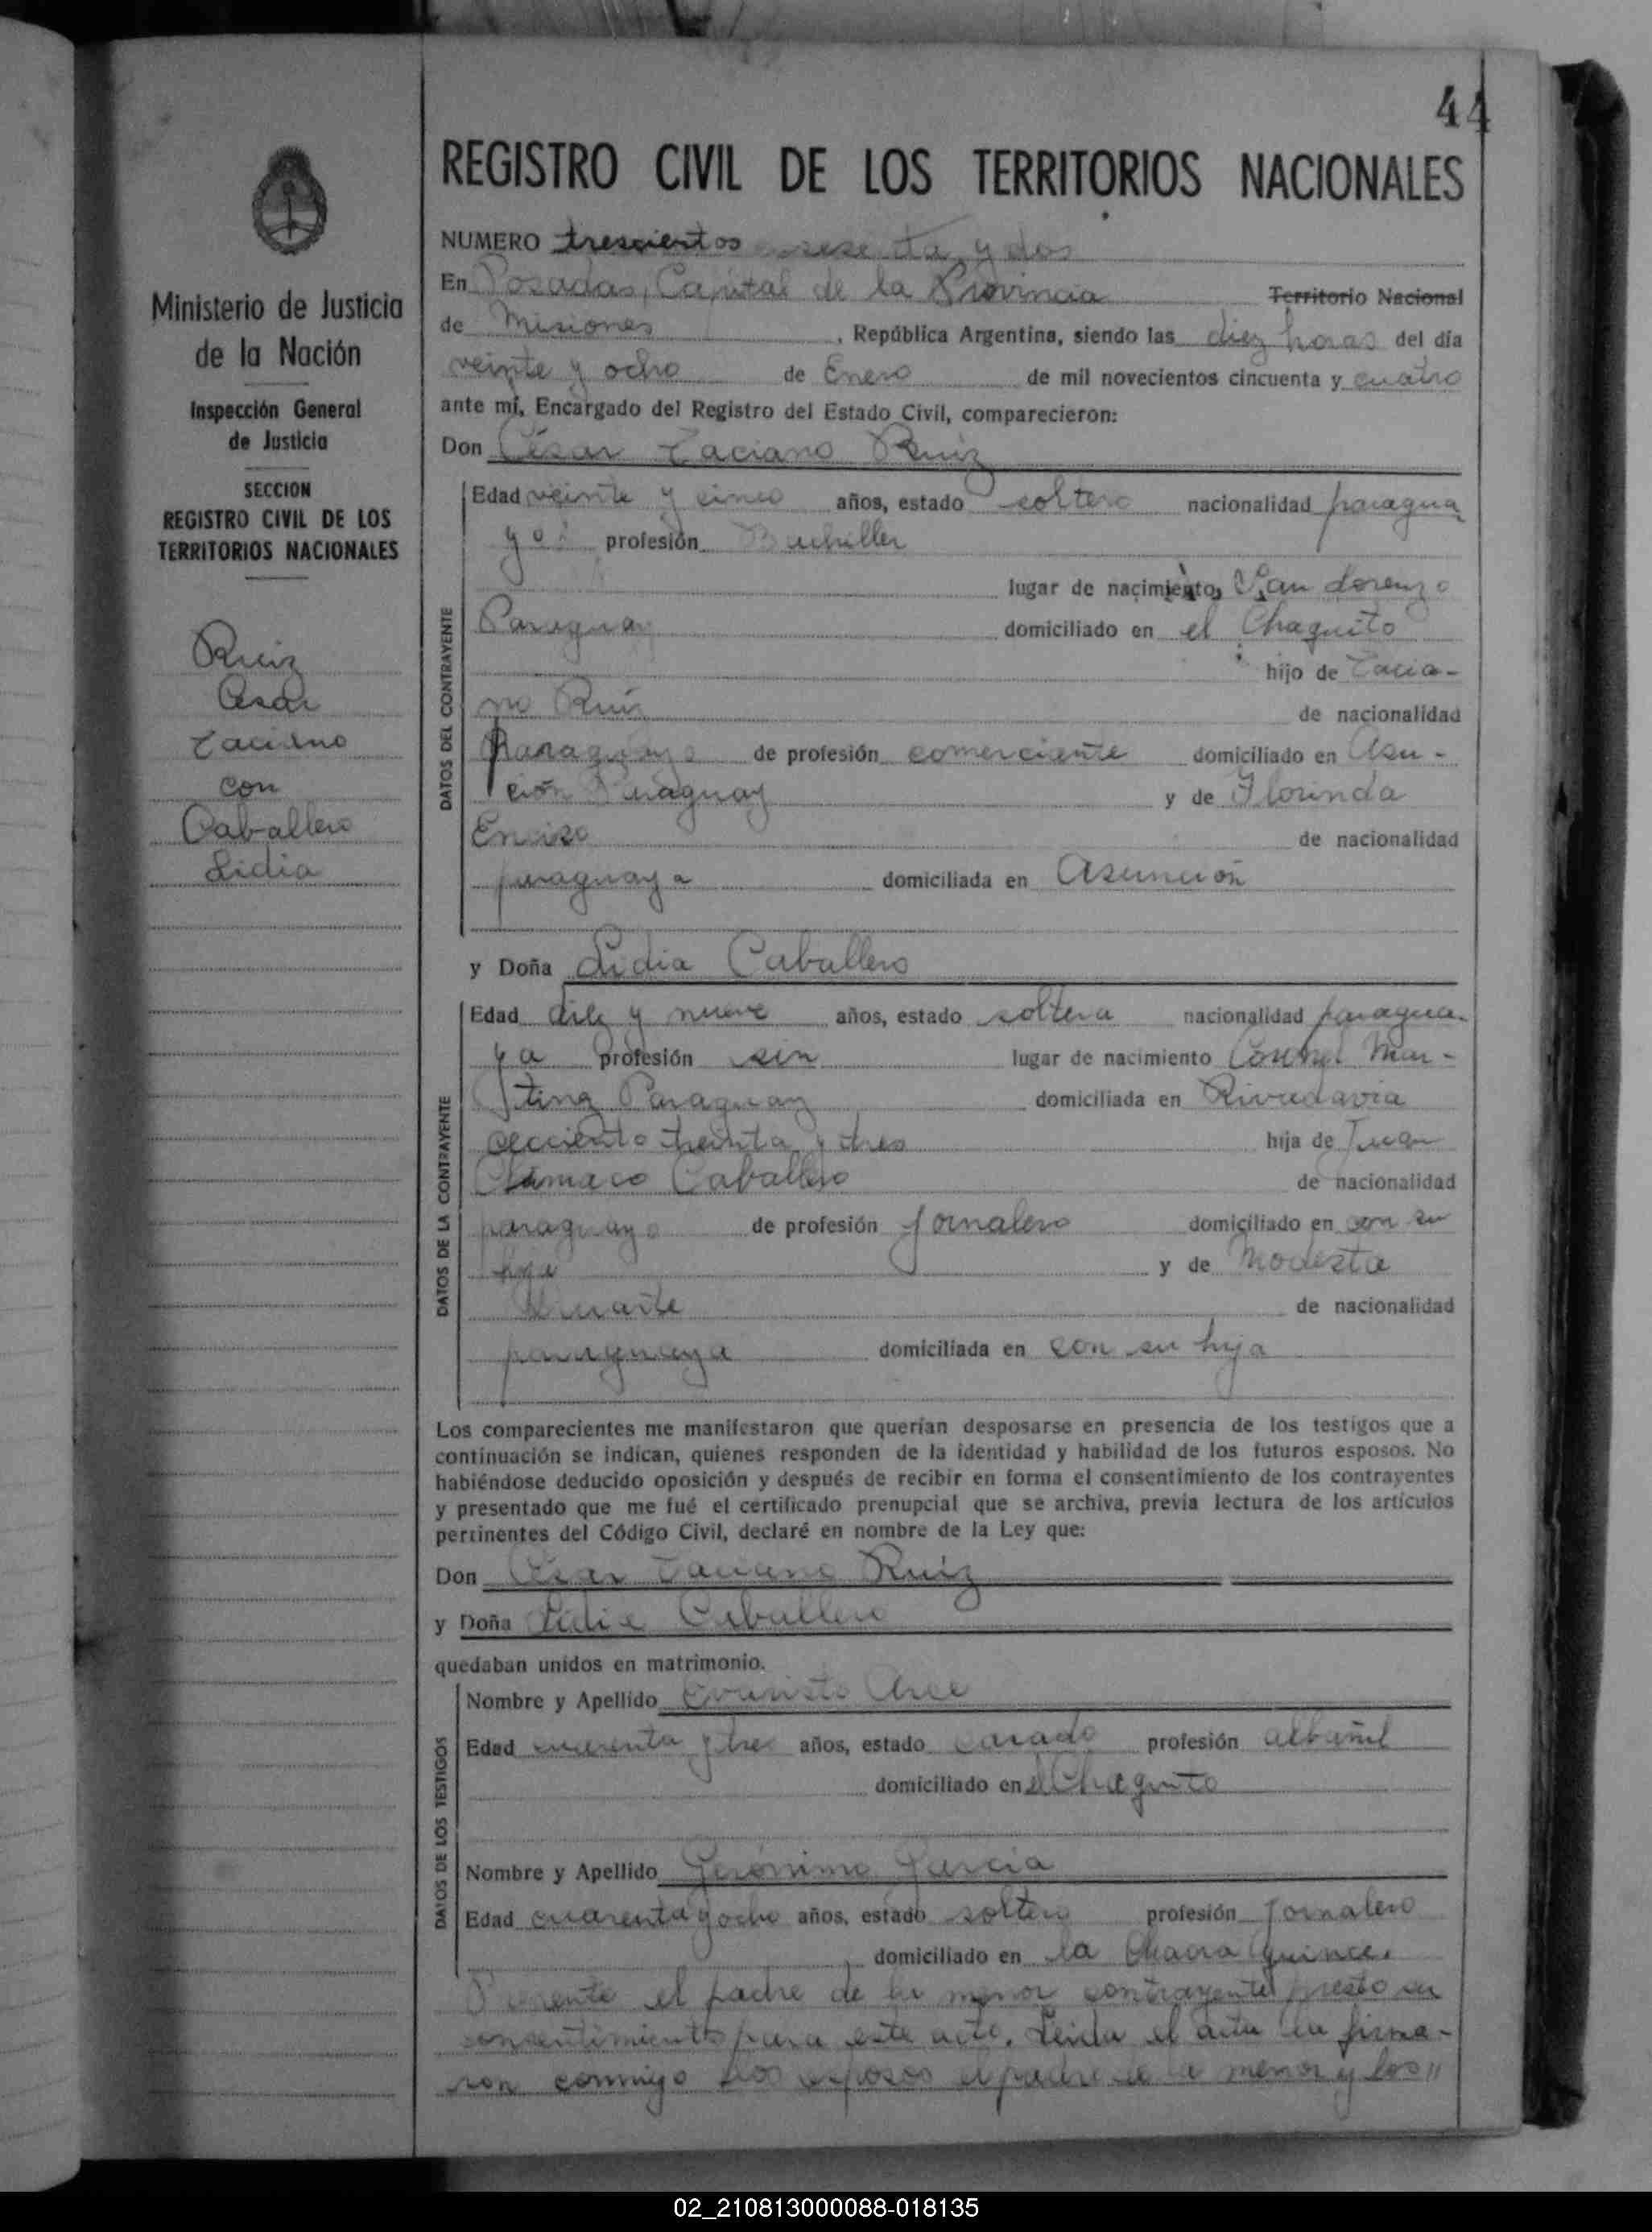 44
REGISTRO CIVIL DE LOS TERRITORIOS NACIONALES
Ministerio de Justicia
de la Nación
Inspección General
de Justicia
SECCION
REGISTRO CIVIL DE LOS
TERRITORIOS NACIONALES
Ruiz
Cesar
Taciano
con
Caballero
Lidia
NUMERO trescientos sesenta y dos
En Posadas, Capital de la Provincia Territorio Nacional
de Misiones, República Argentina, siendo las diez horas del día
veinte y ocho de Enero de mil novecientos cincuenta y cuatro
ante mí, Encargado del Registro del Estado Civil, comparecieron:
Don César Taciano Ruiz
DATOS DEL CONTRAYENTE
Edad veinte y cinco años, estado soltero nacionalidad paragua
yo: profesión Bachiller
lugar de nacimiento, San Lorenzo
Paraguay domiciliado en el Chaquito
hijo de Tacia-
no Ruiz de nacionalidad
paraguayo de profesión comerciante domiciliado en Asu-
ción Paraguay y de Florinda
Enciso de nacionalidad
paraguaya domiciliada en Asunción
y Doña Lidia Caballero
DATOS DE LA CONTRAYENTE
Edad diez y nueve años, estado soltera nacionalidad paragua-
ya profesión sin lugar de nacimiento Coronel Mar-
tinez Paraguay domiciliada en Rivadavia
treinta y tres hija de Juan
Climaco Caballero de nacionalidad
paraguayo de profesión jornalero domiciliado en con su
hija y de Modesta
Duarte de nacionalidad
paraguaya domiciliada en con su hija
Los comparecientes me manifestaron que querían desposarse en presencia de los testigos que a
continuación se indican, quienes responden de la identidad y habilidad de los futuros esposos. No
habiéndose deducido oposición y después de recibir en forma el consentimiento de los contrayentes
y presentado que me fué el certificado prenupcial que se archiva, previa lectura de los artículos
pertinentes del Código Civil, declaré en nombre de la Ley que:
Don César Taciano Ruiz
y Doña Lidia Caballero
quedaban unidos en matrimonio.
DATOS DE LOS TESTIGOS
Nombre y Apellido Evaristo Arce
Edad cuarenta y tres años, estado casado profesión albañil
domiciliado en el Chaquito
Nombre y Apellido Gerónimo Garcia
Edad cuarenta y ocho años, estado soltero profesión Jornalero
domiciliado en la Chacra quince.
Presente el padre de la menor contrayente presto su
consentimiento para este acto. Leida el acta la firma-
ron conmigo los esposos el padre de la menor y los"
02_210813000088-018135